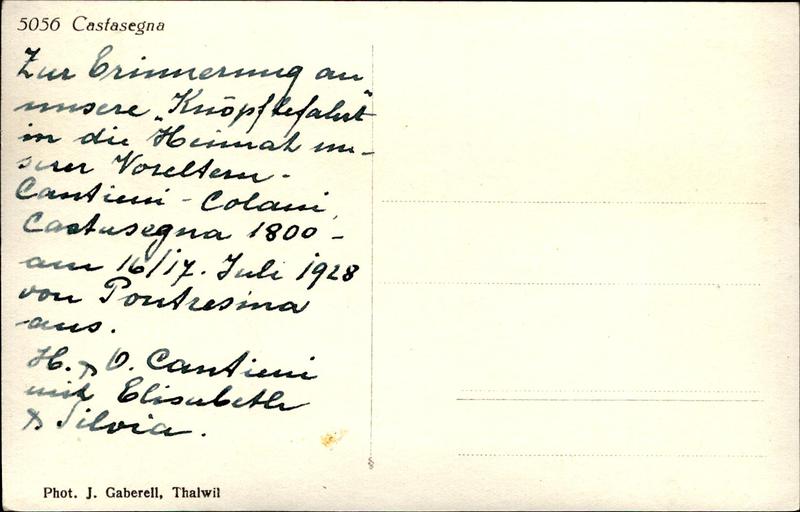 5056 Castasegna
Zur Erinnerung an
unsere „Knöpflefahrt"
in die Heimat un-
serer Voreltern -
Cantieni - Colani,
Castasegna 1800 -
am 16/17. Juli 1928
von Pontresina
aus.
H. & O. Cantieni
mit Elisabeth
& Silvia.
Phot. J. Gaberell, Thalwil